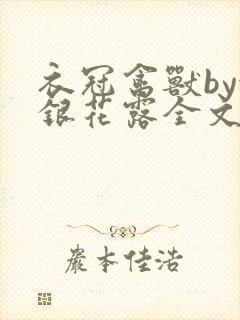 衣冠禽獸by
銀花露全文
嚴本佳浩